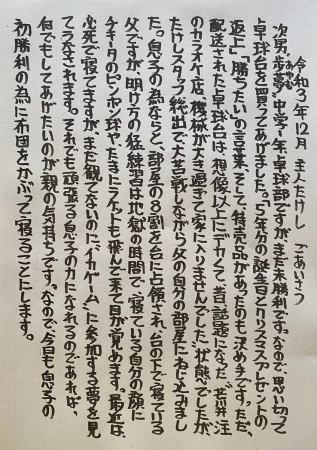 令和3年12月 主人たけし ごあいさつ
次男、歩夢(あゆむ)中学1年、卓球部ですがまだ未勝利です。なので、思い切って
卓球台を買ってあげました。「5年分の誕生日とクリスマスプレゼントの
返上」「勝ちたい」の言葉そして、特売品があったのも決め手です。ただ、
配送された卓球台は、想像以上にデカくて、昔話題になった"若井注
のカラオケ店、機械が大き過ぎて家に入りませんでした"状態でしたが、
たけしスタッフ総出で大苦戦しながら父の自分の部屋にねじ込みまし
た。息子の為ならと、部屋の8割を台に占領され、台の下で寝ている
父ですが、明け方の猛練習は地獄の時間で、寝ている自分の顔に
チキータのピンポン球や、たまにラケットも飛んで来て目が覚めます。最近は、
必死で寝てますが、まだ観てないのに、「イカゲーム」に参加する夢を見
てうなされます。それでも頑張る息子の力になれるのであれば、
何でもしてあげたいのが親の気持ちです。なので今日も息子の
初勝利の為に布団をかぶって寝ることにします。